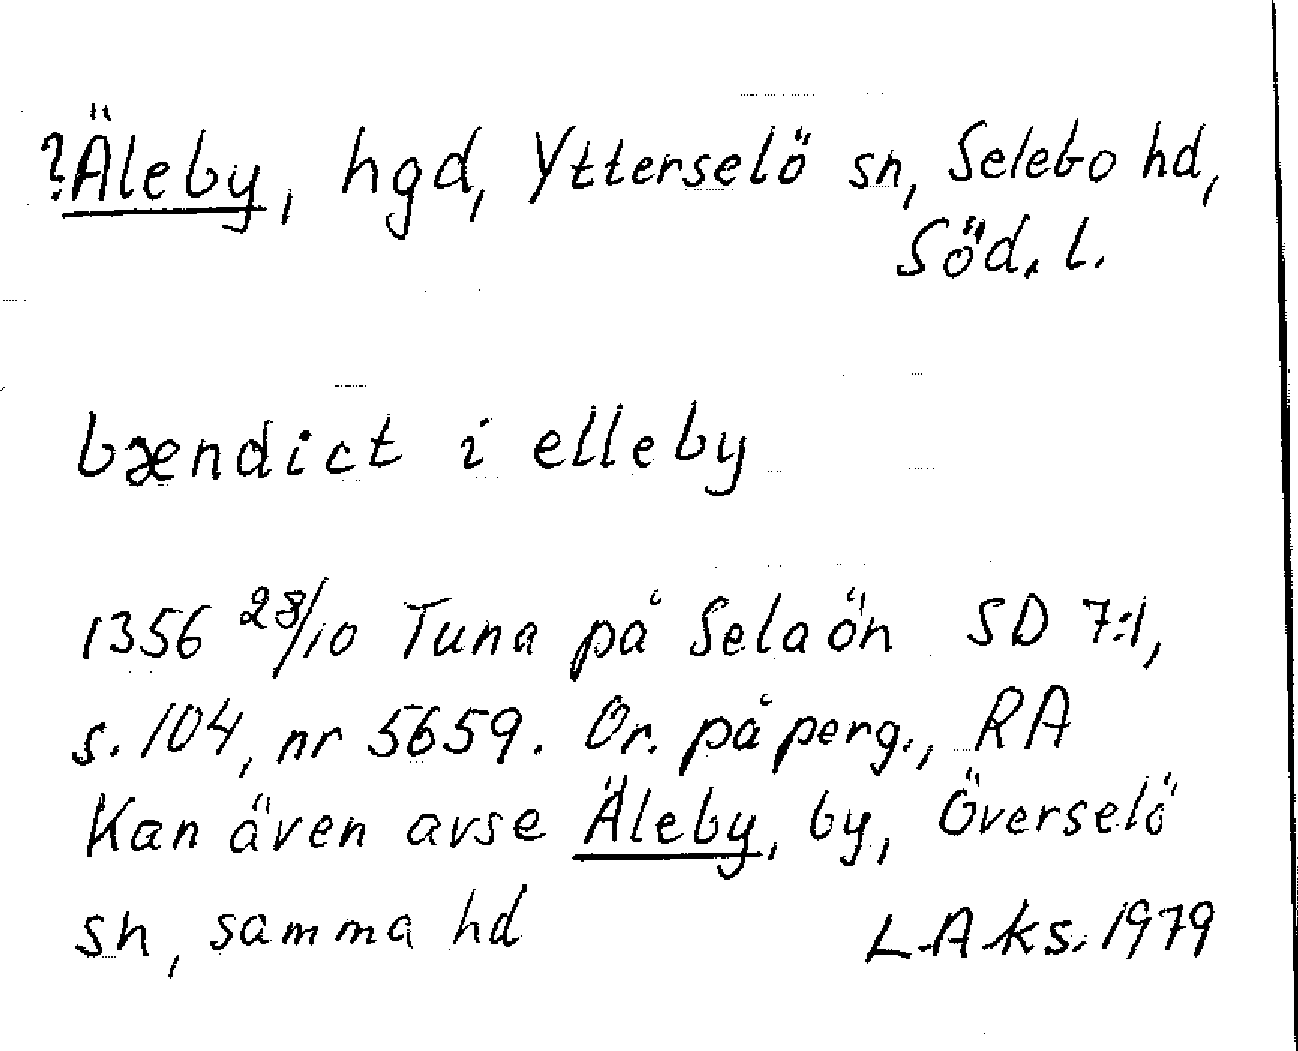 ?Äleby, hgd, Ytterselö sn, Selebo hd,
Söd. l.
bændict i elleby
1356 28/10 Tuna på Selaön SD 7:1,
s. 104, nr 5659. Or. på perg., RA
Kan även avse Äleby, by, Överselö
sn, samma hd L-A ks. 1979